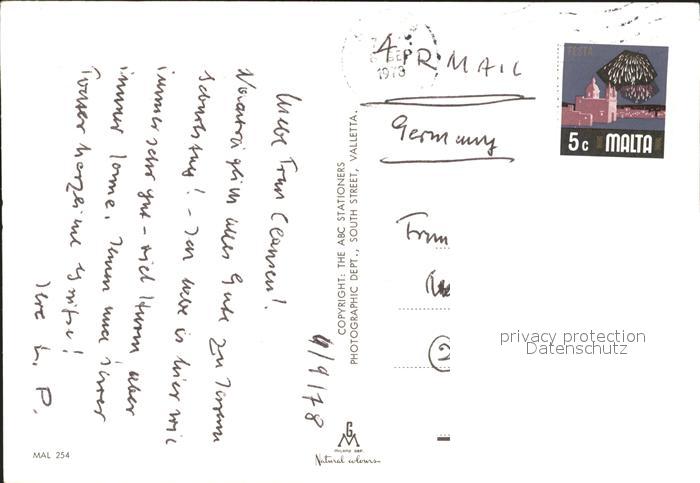 AIR MAIL
SEP
1978
FESTA
5c MALTA
Germany
Frau
privacy protection
Datenschutz
9/9/78
Liebe Frau Clausen!
Nachträglich alles Gute zu Ihrem
Ich habe es hier wie
immer sehr gut - viel Sturm, aber
immer Sonne. Ihnen und Ihrer
herzliche Grüße!
Ihre L. P.
COPYRIGHT: THE ABC STATIONERS
PHOTOGRAPHIC DEPT., SOUTH STREET, VALLETTA.
MAL 254
Natural colours